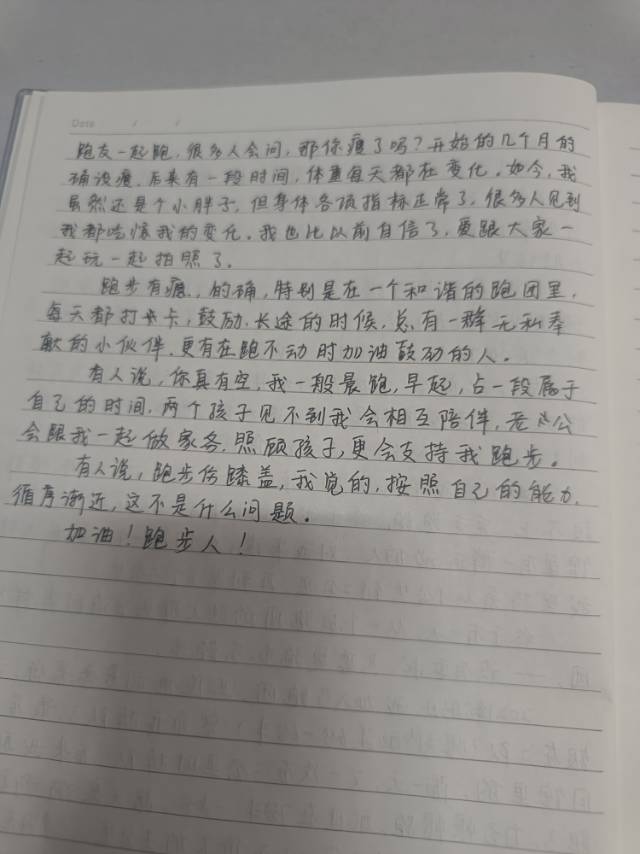 Date / /
跑友一起跑，很多人会问，那你瘦了吗？开始的几个月的
确没瘦，后来有一段时间，体重每天都在变化。如今，我
虽然还是个小胖子，但身体各项指标正常了，很多人见到
我都吃惊我的变化。我也比以前自信了，爱跟大家一
起玩一起拍照了。
跑步有瘾，的确，特别是在一个和谐的跑团里，
每天都打卡，鼓励，长途的时候，总有一群无私奉
献的小伙伴，更有在跑不动时加油鼓劲的人。
有人说，你真有空，我一般晨跑，早起，占一段属于
自己的时间，两个孩子见不到我会相互陪伴，老公
会跟我一起做家务，照顾孩子，更会支持我跑步。
有人说，跑步伤膝盖，我觉的，按照自己的能力，
循序渐近，这不是什么问题。
加油！跑步人！